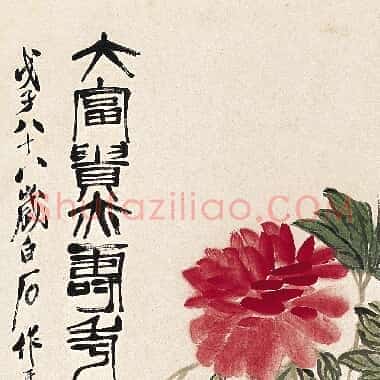 大富貴亦壽考
戊子八十八歲白石作
Shufaziliao.COM